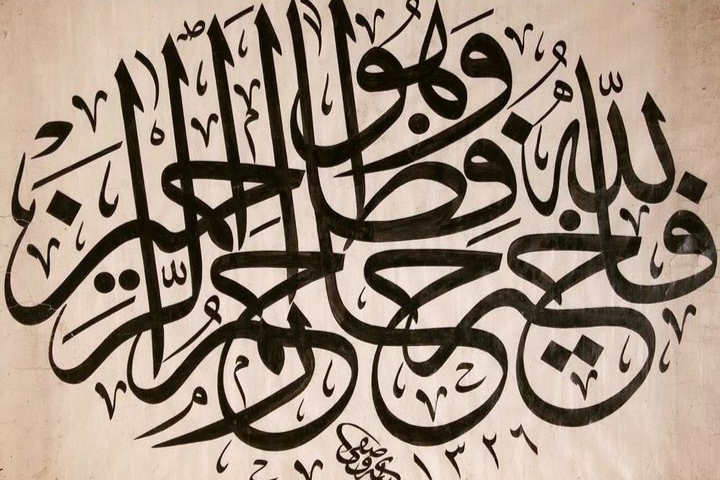 فالله خير حافظا وهو أرحم الراحمين
١٣٢٦